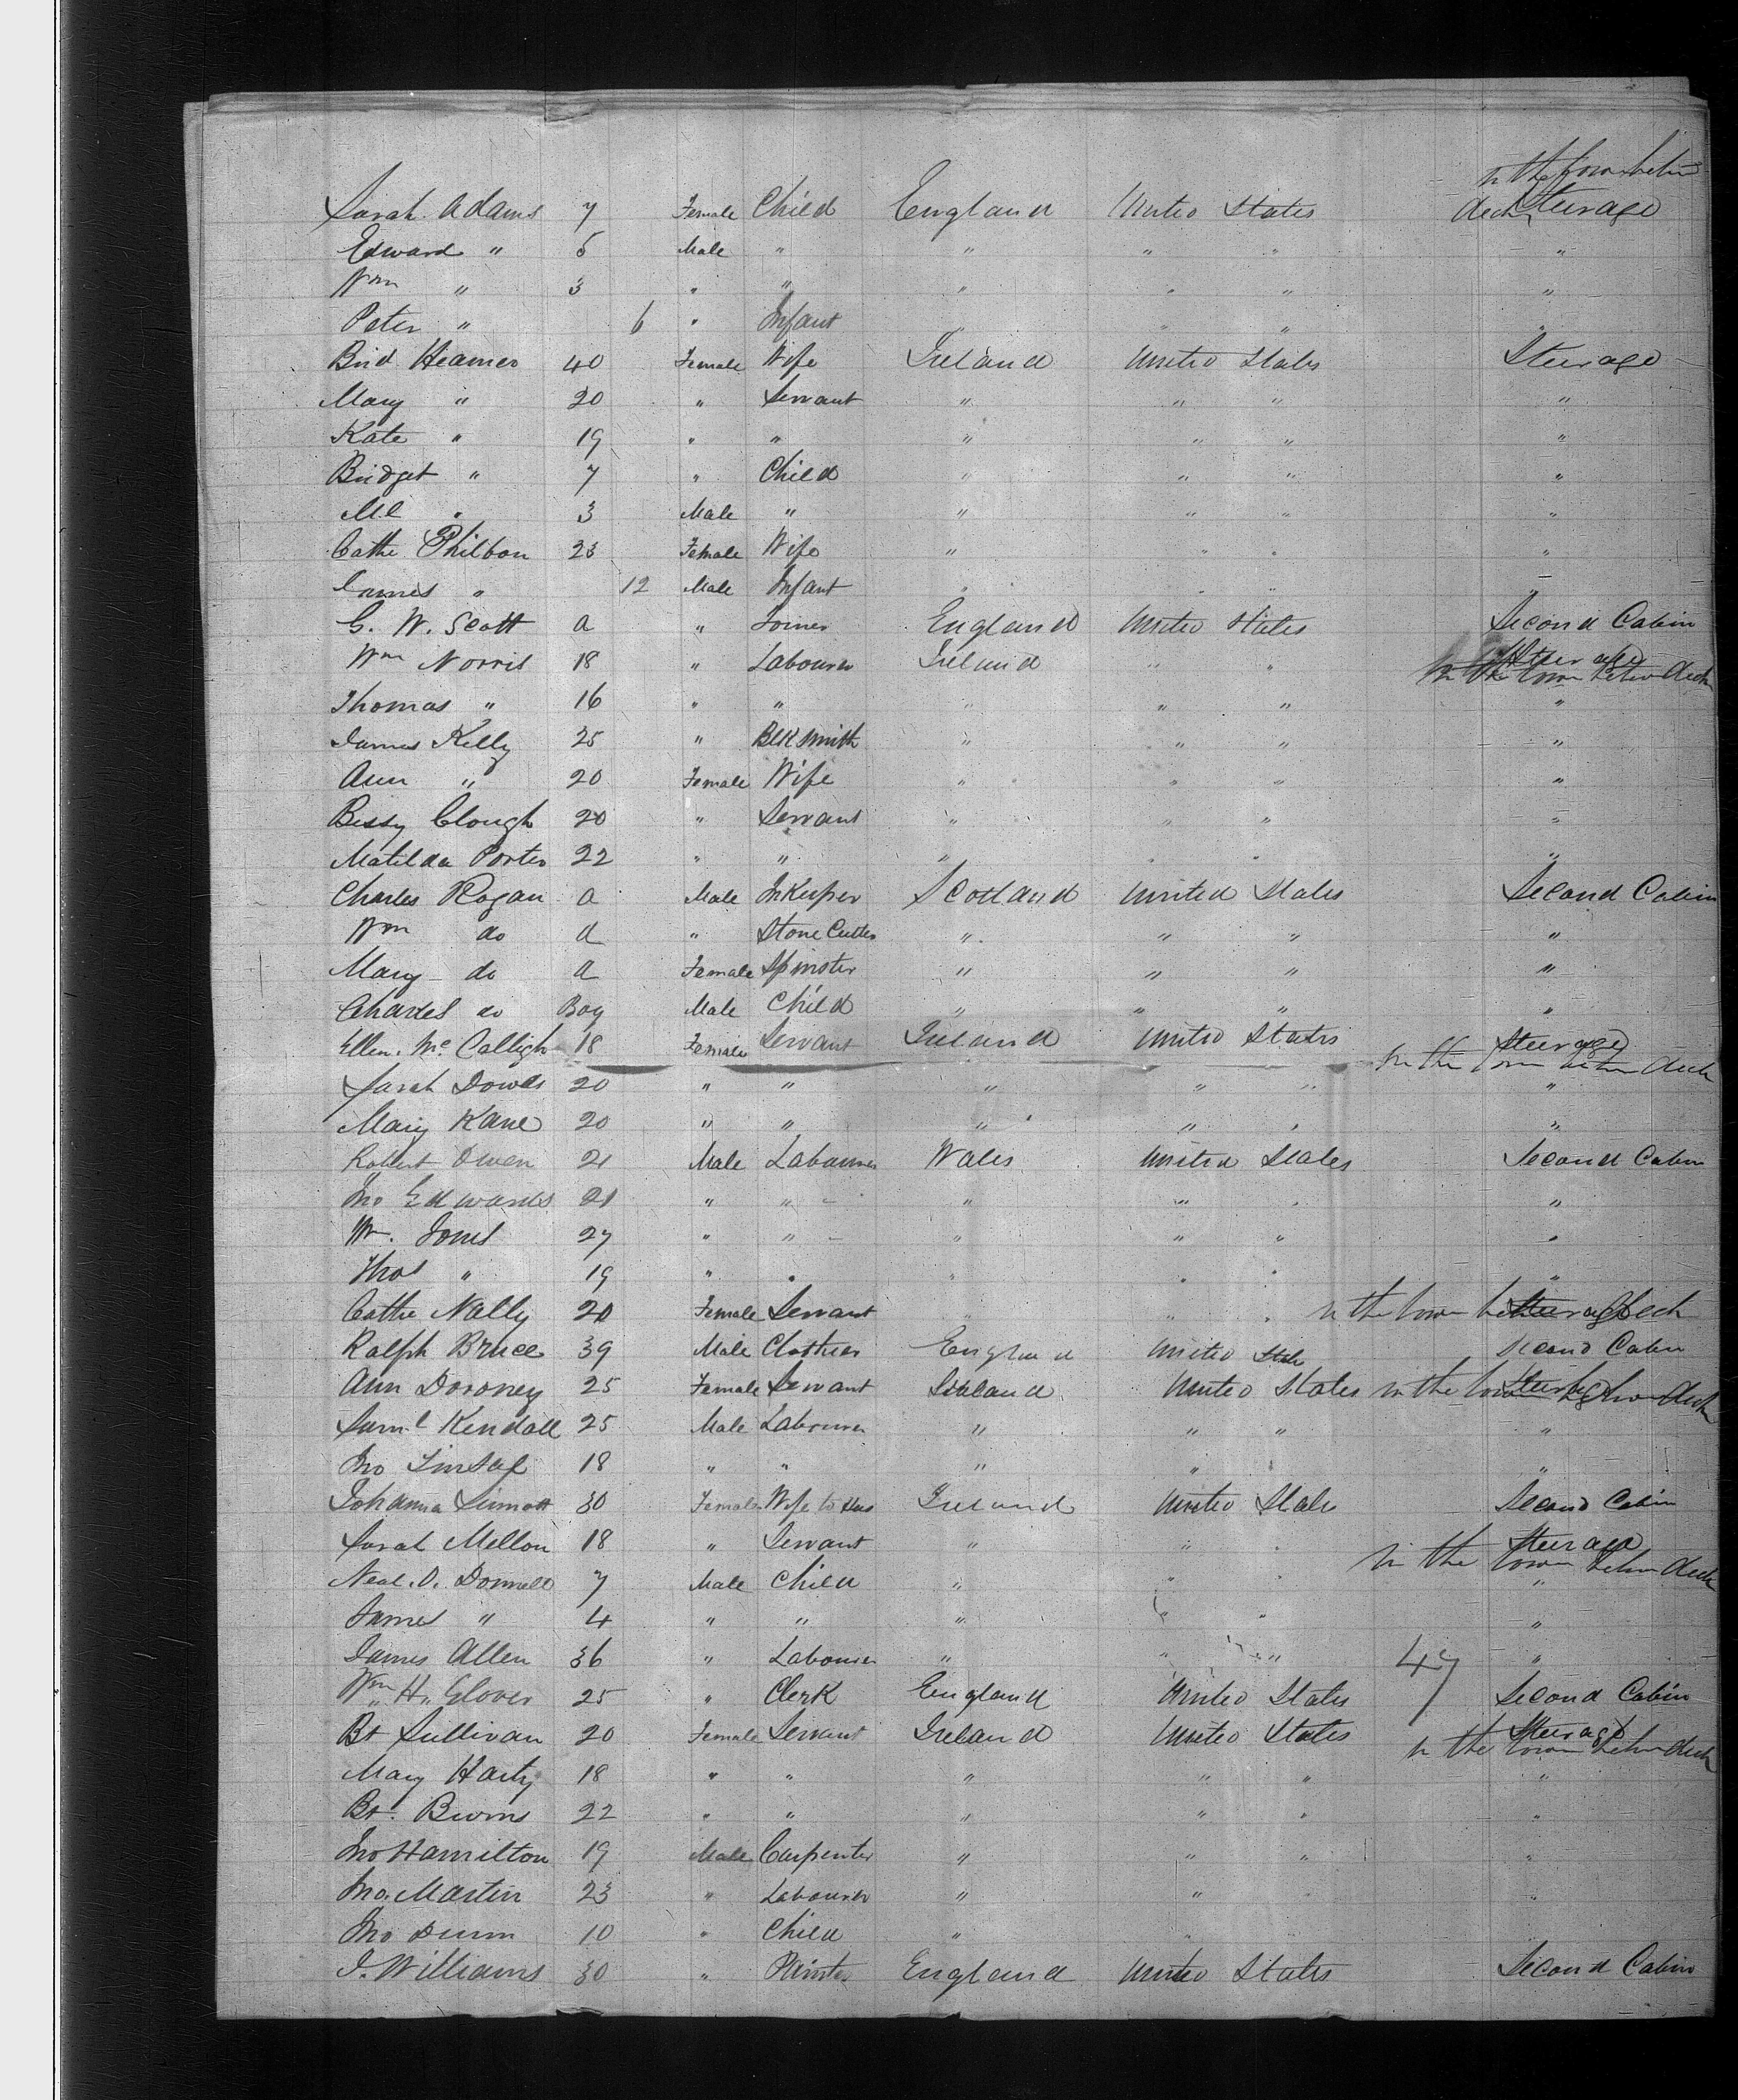 in the lower betw
Sarah Adams 7 Female Child England United States deck Steerage
Edward " 5 Male " " " " "
Wm " 3 " " " " " "
Peter " 6 " Infant " " " "
Brid Heames 40 Female Wife Ireland United States Steerage
Mary " 20 " Servant " " " "
Kate " 19 " " " " " "
Bridget " 7 " Child " " " "
Ml " 3 Male " " " " "
Cathe Philbon 23 Female Wife " " " "
James " 12 Male Infant " " " "
G. W. Scott a " Joiner England United States Second Cabin
Wm Norris 18 " Labourer Ireland " " Steerage
in the lower betw deck
Thomas " 16 " " " " " "
James Kelly 25 " Blksmith " " " "
Ann " 20 Female Wife " " " "
Bessy Clough 20 " Servant " " " "
Matilda Porter 22 " " " " " "
Charles Rogan a Male InKeeper Scotland United States Second Cabin
Wm do a " Stone Cutter " " " "
Mary do a Female Spinster " " " "
Charles do Boy Male Child " " " "
Ellen Mc Calligh 18 Female Servant Ireland United States Steerage
in the lower betwn deck
Sarah Dowds 20 " " " " " "
Mary Kane 20 " " " " " "
Robert Owen 21 Male Labourer Wales United States Second Cabin
Jno Edwards 21 " " " " " "
Wm. Jones 27 " " " " " "
Thos " 19 " " " " " "
Cathe Nally 20 Female Servant " " " in the lower betwn Steerage deck
Ralph Bruce 39 Male Clothier England United State Second Cabin
Ann Doroney 25 Female Servant Ireland United States in the lower Steerage betwn deck
Saml Kendall 25 Male Labourer " " " "
Jno 18 " " " " " "
Johanna Sinnott 30 Female Wife to Hus Ireland United States Second Cabin
Sarah Mellon 18 " Servant " " " Steerage
in the lower betwn deck
Neal O. Donnell 7 Male Child " " " "
James " 4 " " " " " "
James Allen 36 " Labourer " " " 47 "
Wm H. Glover 25 " Clerk England United States Second Cabin
Bt Sullivan 20 Female Servant Ireland United States Steerage
in the lower betwn deck
Mary Harty 18 " " " " " "
Bt. Burns 22 " " " " " "
Jno Hamilton 19 Male Carpenter " " " "
Jno. Martin 23 " Labourer " " " "
Jno Dunn 10 " Child " "
J. Williams 30 " Painter England United States Second Cabin